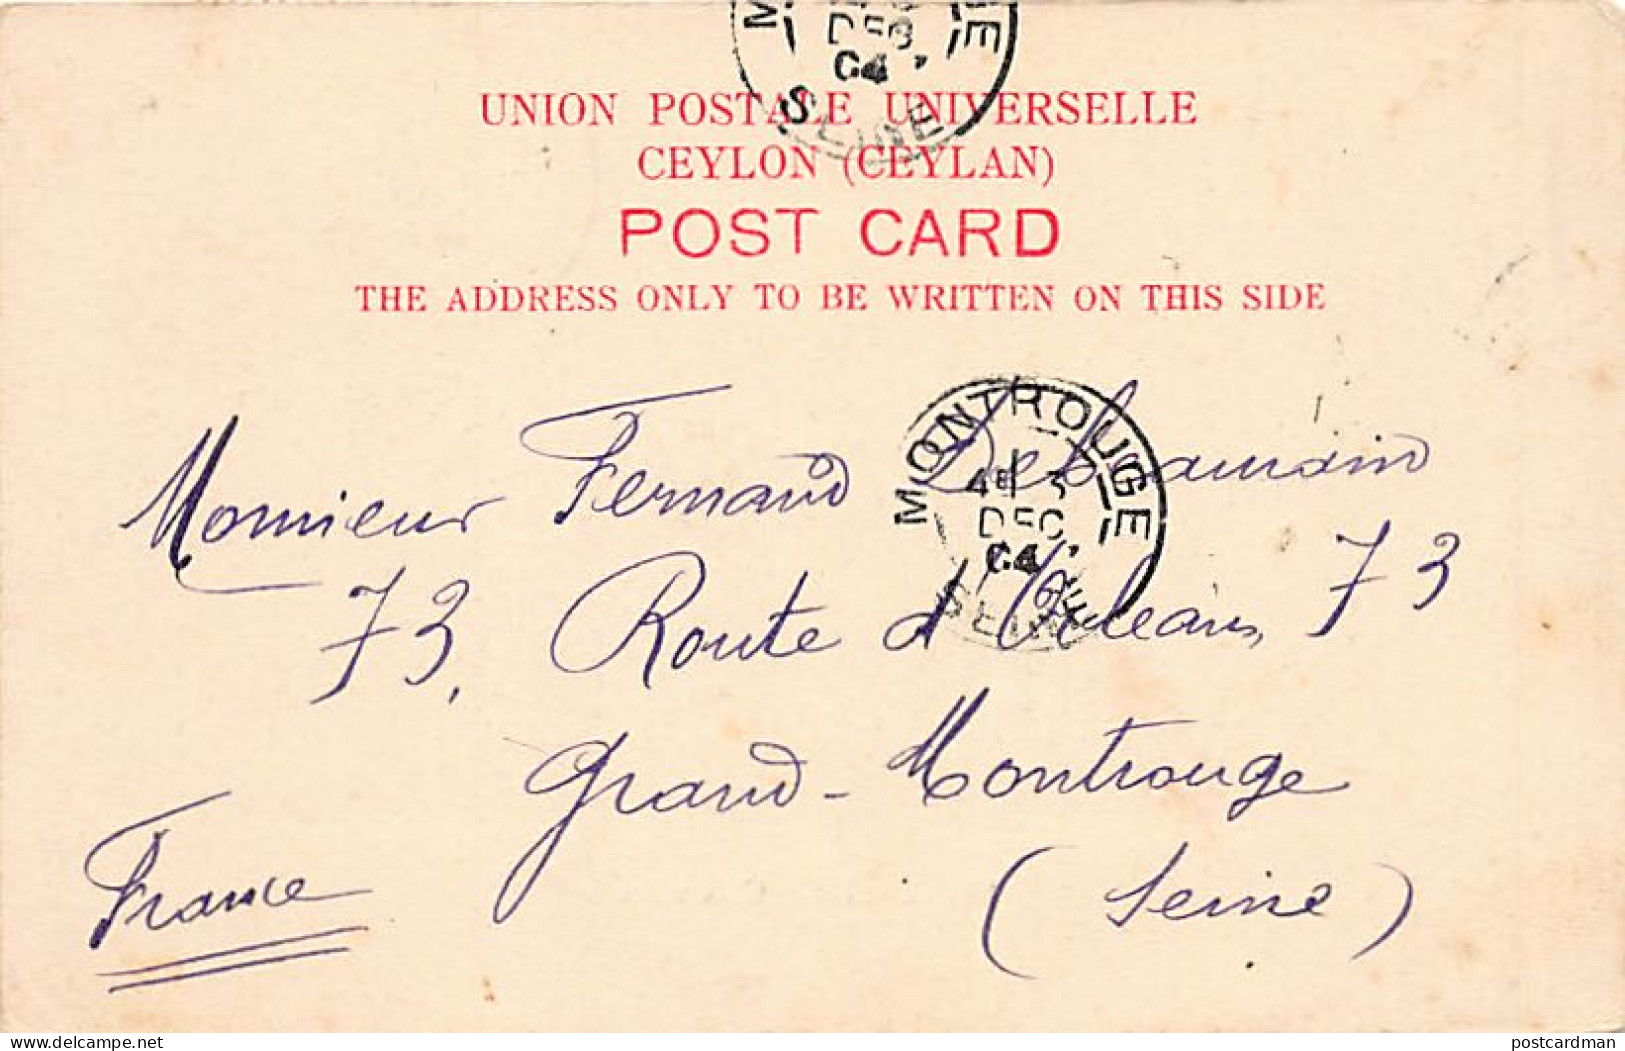 DEC
04
SEINE
UNION POSTALE UNIVERSELLE
CEYLON (CEYLAN)
POST CARD
THE ADDRESS ONLY TO BE WRITTEN ON THIS SIDE
MONTROUGE
4E 3
DEC
04
SEINE
Monsieur Fernand
73, Route d'Orléans, 73
Grand-Montrouge
(Seine)
France
delcampe.net
postcardman